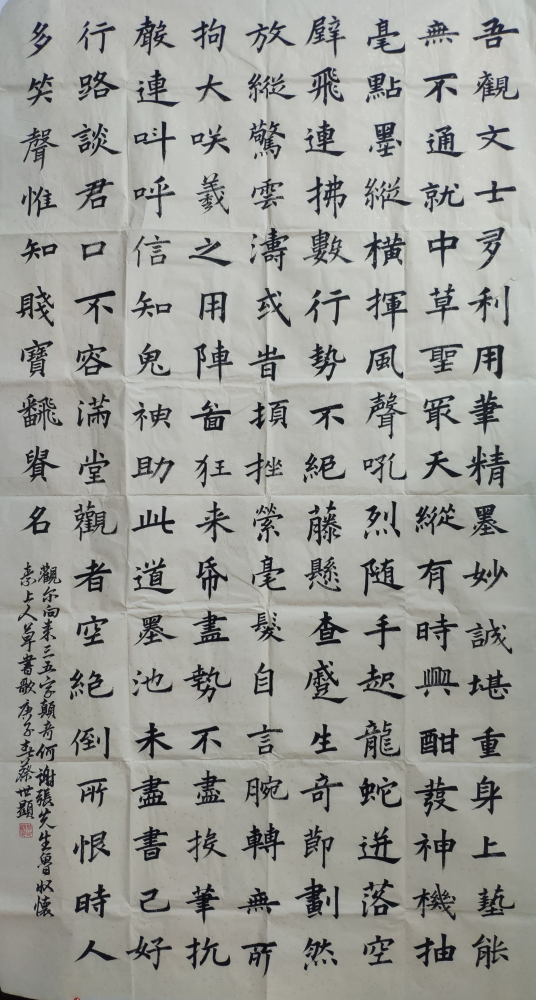 吾觀文士多利用筆精墨妙誠堪重身上藝能
無不通就中草聖冣天縱有時興酣發神機抽
毫點墨縱橫揮風聲吼烈随手起龍蛇迸落空
壁飛連拂數行勢不絕藤懸查蹙生奇節劃然
放縱驚雲濤或旹頓挫縈毫髮自言腕轉無所
拘大咲羲之用陣啚狂来帋盡勢不盡投筆抗
聲連叫呼信知鬼神助此道墨池未盡書已好
行路談君口不容滿堂觀者空絕倒所恨時人
多笑聲惟知賤寶飜貲名
觀尔向来三五字顛奇何謝張先生魯収懷
素上人草書歌庚子春蔡世顯